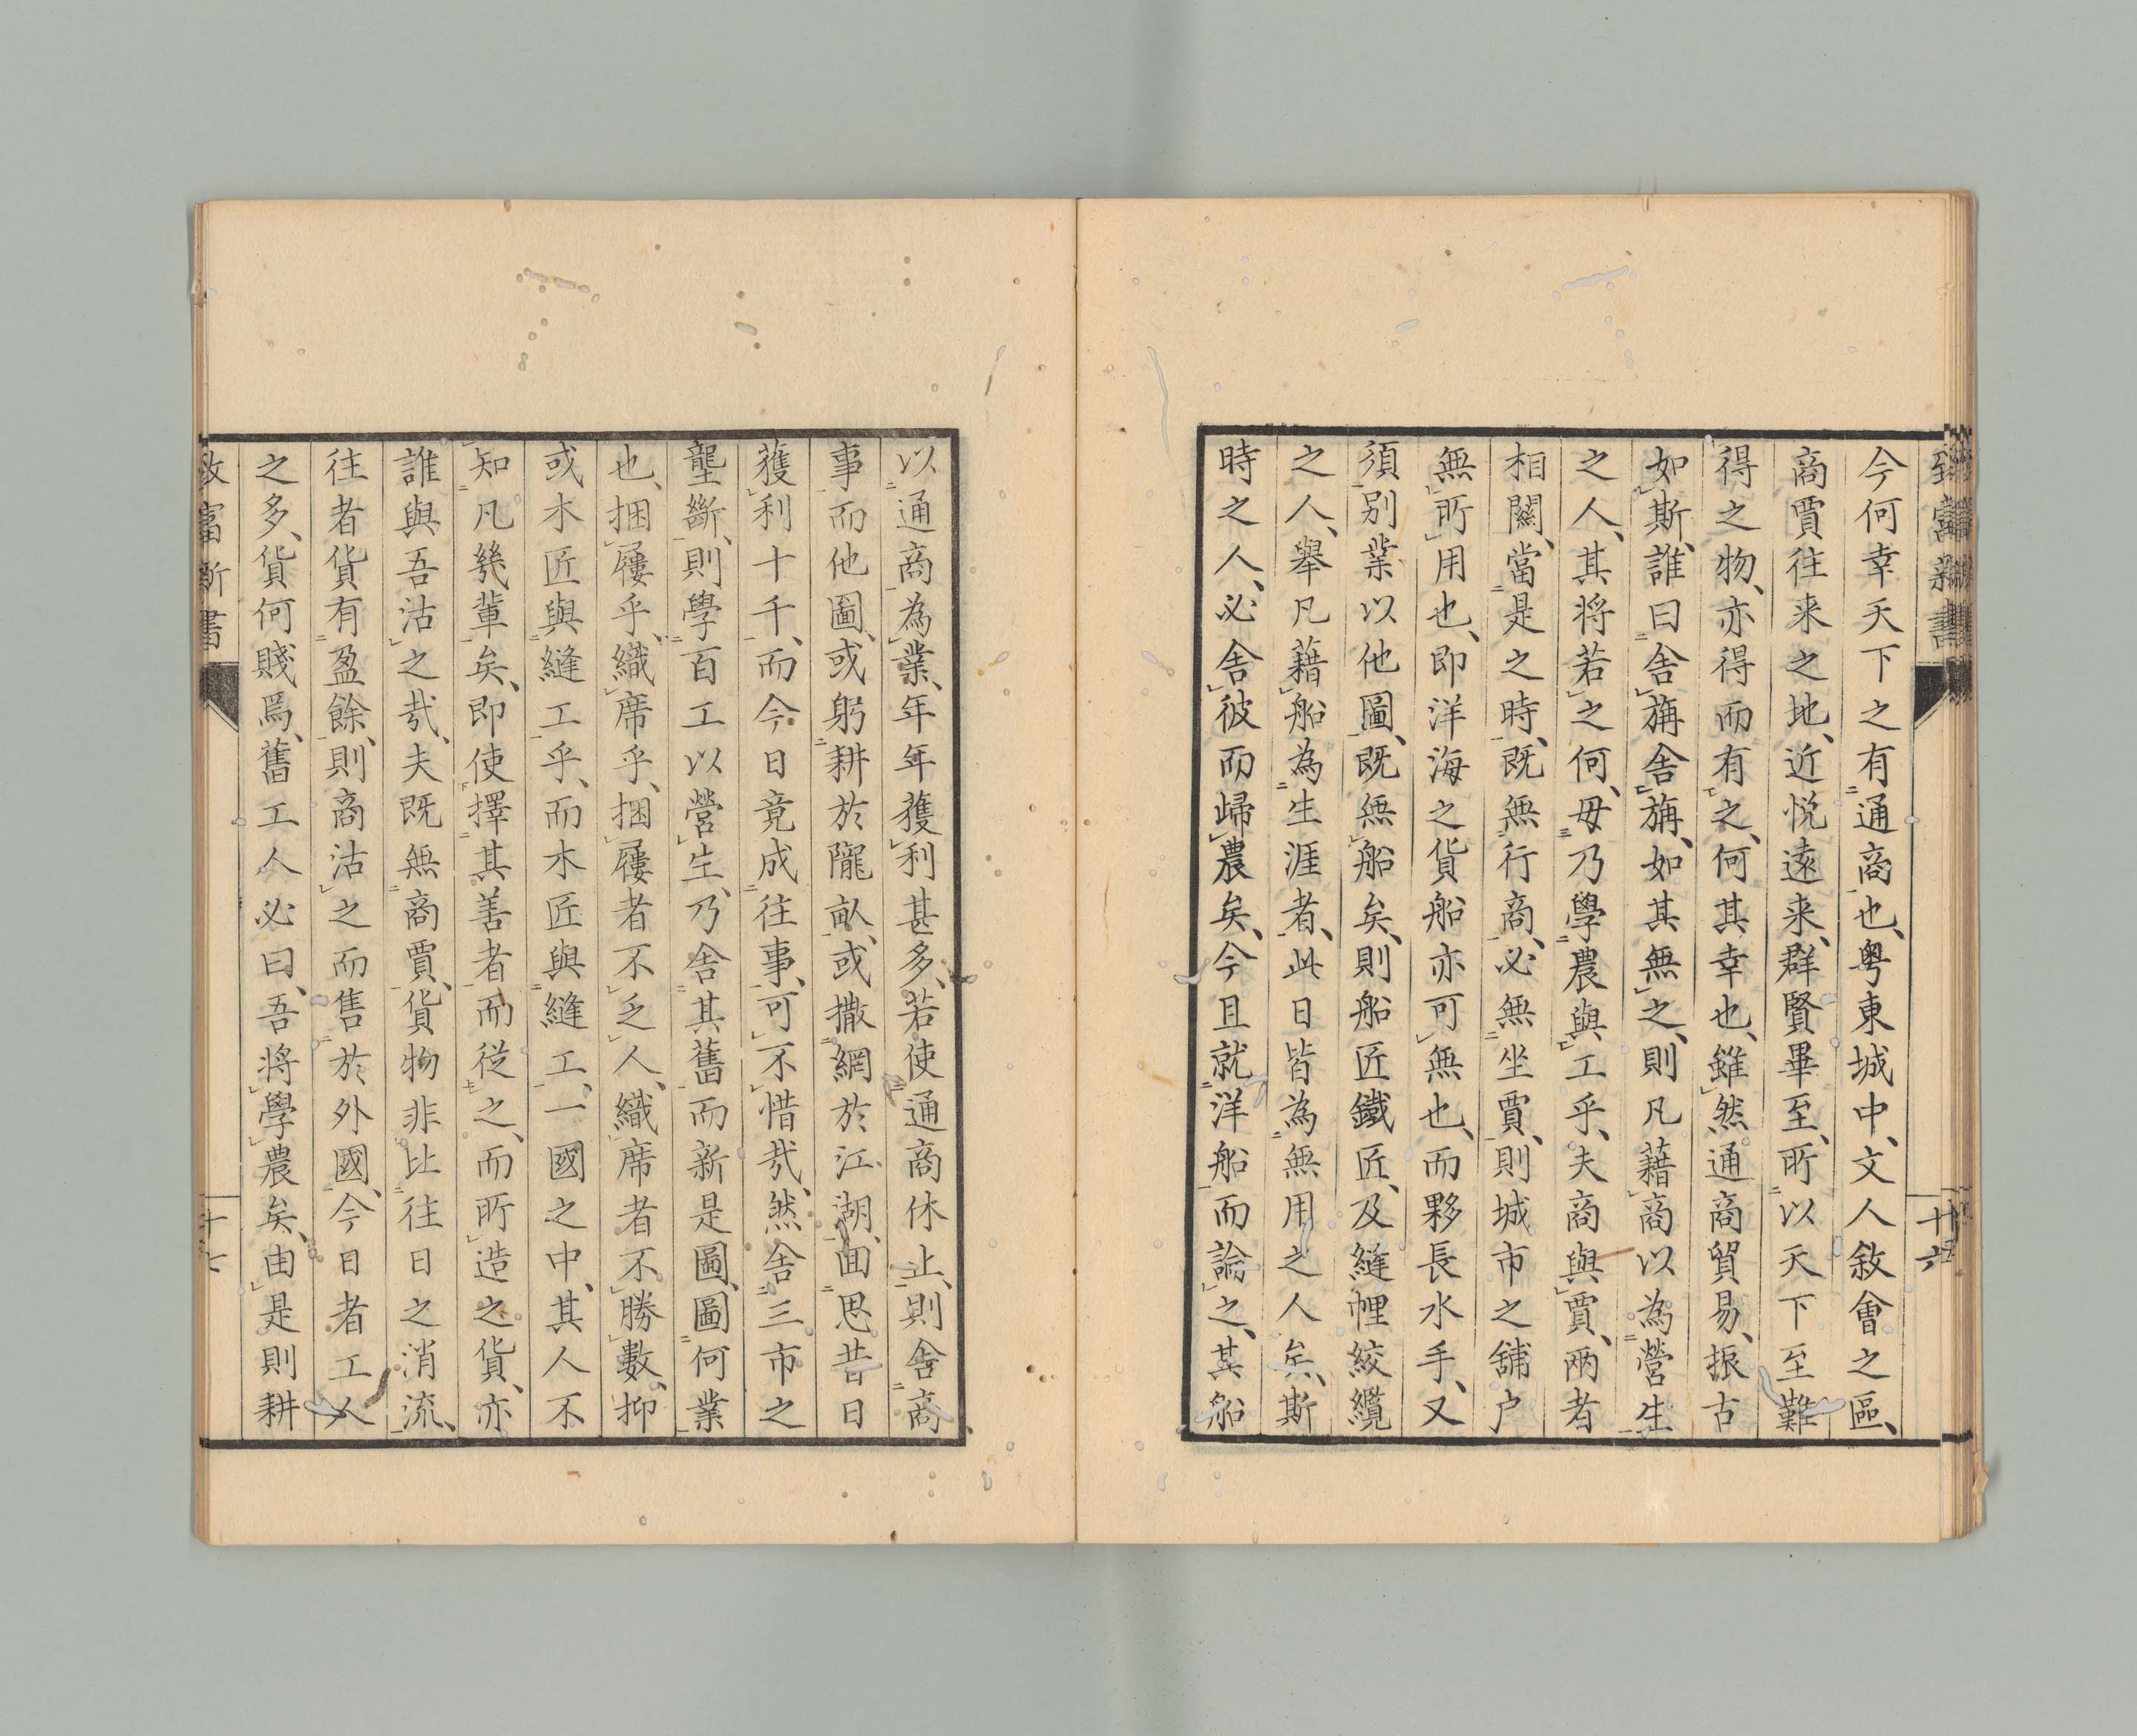 致富新書
十六
今何幸天下之有通商也、粤東城中、文人敘會之區、
商賈往来之地、近悦遠来、群賢畢至、所以天下至難
得之物、亦得而有之、何其幸也、雖然通商貿易、振古
如斯、誰曰舍旃舍旃、如其無之、則凡藉商以為營生
之人、其将若之何、毋乃學農與工乎、夫商與賈、兩者
相關、當是之時、既無行商、必無坐賈、則城市之舖户
無所用也、即洋海之貨船亦可無也、而夥長水手、又
須别業以他圖、既無船矣、則船匠鐵匠、及縫㡙絞纜
之人、舉凡藉船為生涯者、此日皆為無用之人矣、斯
時之人、必舍彼而歸農矣、今且就洋船而論之、其船
以通商為業、年年獲利甚多、若使通商休止、則舍商
事而他圖、或躬耕於隴畝、或撒網於江湖、囬思昔日
獲利十千、而今日竟成往事、可不惜哉、然舍三市之
壟斷、則學百工以營生、乃舍其舊而新是圖、圖何業
也、捆屨乎、織席乎、捆屨者不乏人、織席者不勝數、抑
或木匠與縫工乎、而木匠與縫工、一國之中、其人不
知凡幾輩矣、即使擇其善者而從之、而所造之貨、亦
誰與吾沽之哉、夫既無商賈、貨物非比往日之消流、
往者貨有盈餘、則商沽之而售於外國、今日者工人
之多、貨何賤焉、舊工人必曰、吾将學農矣、由是則耕
致富新書
十七